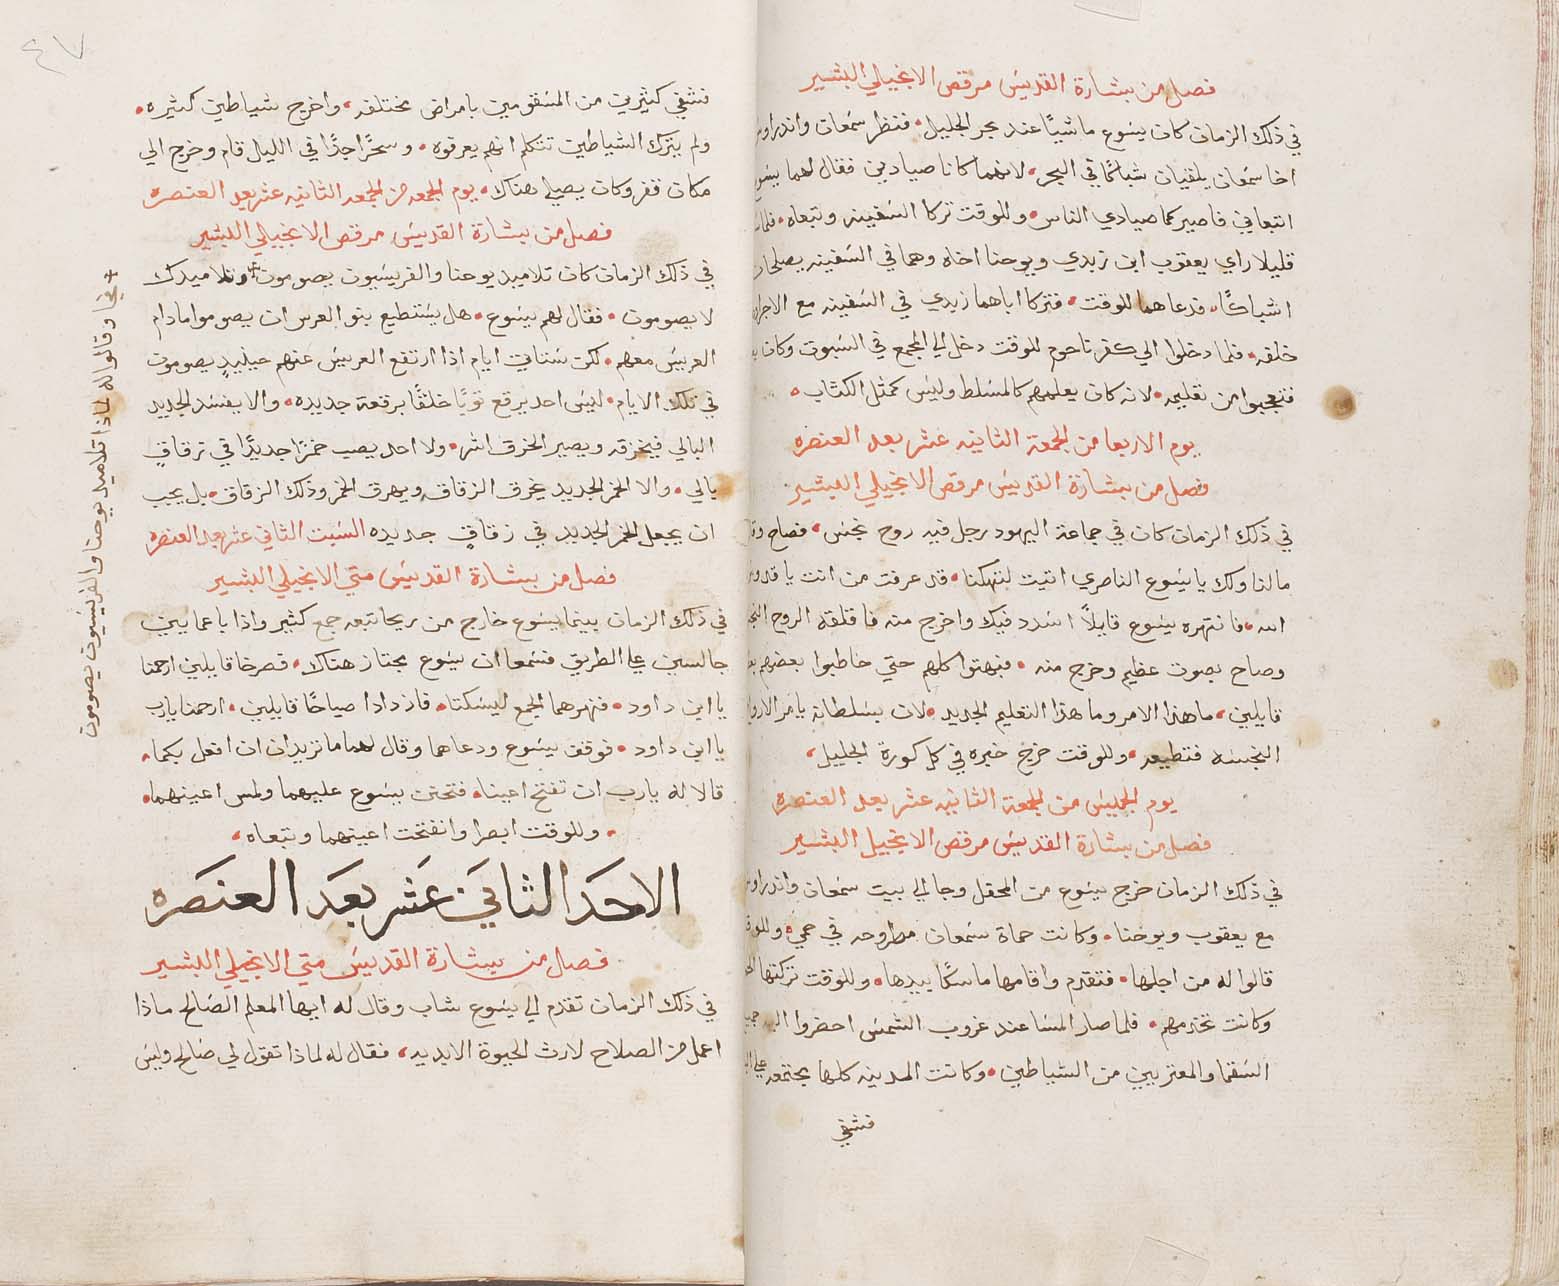 فصل من بشارة القديس مرقص الانجيلي البشير
في ذلك الزمان كان يسوع ماشيًا عند بحر الجليل فنظر سمعان واندراوس
اخا سمعان يلقيان شباكًا في البحر لانهما كانا صيادين فقال لهما يسوع
اتبعاني فاصيركما صيادي الناس وللوقت تركا السفينه وتبعاه
قليلا راي يعقوب ابن زبدي ويوحنا اخاه وهما في السفينه يصلحان
اشباكًا فدعاهما للوقت فتركا اباهما زبدي في السفينه مع الاجرا
خلفه فلما دخلوا الي كفرناحوم للوقت دخل الي المجمع في السبوت وكان
فتعجبوا من تعليمه لانه كان يعلمهم كالمسلط وليس كمثل الكتاب
يوم الاربعا من الجمعة الثانيه عشر بعد العنصره
فصل من بشارة القديس مرقص الانجيلي البشير
في ذلك الزمان كان في جماعة اليهود رجل فيه روح نجس فصاح
مالنا ولك يا يسوع الناصري اتيت لتهلكنا قد عرفت من انت يا قدوس
الله فانتهره يسوع قايلاً اسدد فيك واخرج منه فاقلقه الروح
وصاح بصوت عظيم وخرج منه فبهتوا كلهم حتي خاطبوا بعضهم
قايلين ما هذا الامر وما هذا التعليم الجديد لان بسلطانه يامر الارواح
النجسه فتطيعه وللوقت خرج خبره في كل كورة الجليل
يوم الخميس من الجمعة الثانيه عشر بعد العنصره
فصل من بشارة القديس مرقص الانجيل البشير
في ذلك الزمان خرج يسوع من المحفل وجا الي بيت سمعان واندراوس
مع يعقوب ويوحنا وكانت حماة سمعان مطروحه في حمي
قالوا له من اجلها فتقدم واقامها ماسكًا بيدها وللوقت تركتها
وكانت تخدمهم فلما صار المسا عند غروب الشمس احضروا اليه
السقما والمعتريين من الشياطين وكانت المدينه كلها مجتمعه علي
فشفي
٤٧
فشفي كثيرين من المسقومين بامراض مختلفه واخرج شياطين كثيره
ولم يترك الشياطين تتكلم انهم يعرفوه وسحرًا جدًا في الليل قام وخرج الي
مكان قفر وكان يصلي هناك يوم الجمعه من الجمعه الثانيه عشر بعد العنصره
فصل من بشارة القديس مرقص الانجيلي البشير
في ذلك الزمان كان تلاميد يوحنا والفريسيون يصومون وتلاميدك
لا يصومون فقال لهم يسوع هل يستطيع بنو العرس ان يصوموا مادام
العريس معهم لكن ستاتي ايام اذا ارتفع العريس عنهم حينيدٍ يصومون
في تلك الايام ليس احد يرقع ثوبًا خلقًا برقعة جديده والا يفسد الجديد
البالي فيخزقه ويصير الخرق اشر ولا احد يصب خمرًا جديدًا في زقاقٍ
بالي والا الخمر الجديد يخرق الزقاق ويهرق الخمر وذلك الزقاق بل يجب
ان يجعل الخمر الجديد في زقاقٍ جديده السبت الثاني عشر بعد العنصره
فصل من بشارة القديس متي الانجيلي البشير
في ذلك الزمان بينما يسوع خارج من ريحا تبعه جمع كثير واذا باعمايين
جالسين علي الطريق فسمعا ان يسوع مجتاز هناك فصرخا قايلين ارحمنا
يا ابن داود فنهرهما الجمع ليسكتا فازدادا صياحًا قايلين ارحمنا يارب
يا ابن داود فوقف يسوع ودعاهما وقال لهما ما تريدان ان افعل بكما
قالا له يارب ان تفتح اعيننا فتحنن يسوع عليهما ولمس اعينهما
وللوقت ابصرا وانفتحت اعينهما وتبعاه
الاحد الثاني عشر بعد العنصره
فصل من بشارة القديس متي الانجيلي البشير
في ذلك الزمان تقدم الي يسوع شاب وقال له ايها المعلم الصالح ماذا
اعمل من الصلاح لارث الحيوة الابديه فقال له لماذا تقول لي صالح وليس
وقالوا له لماذا تلاميد يوحنا والفريسيون يصومون